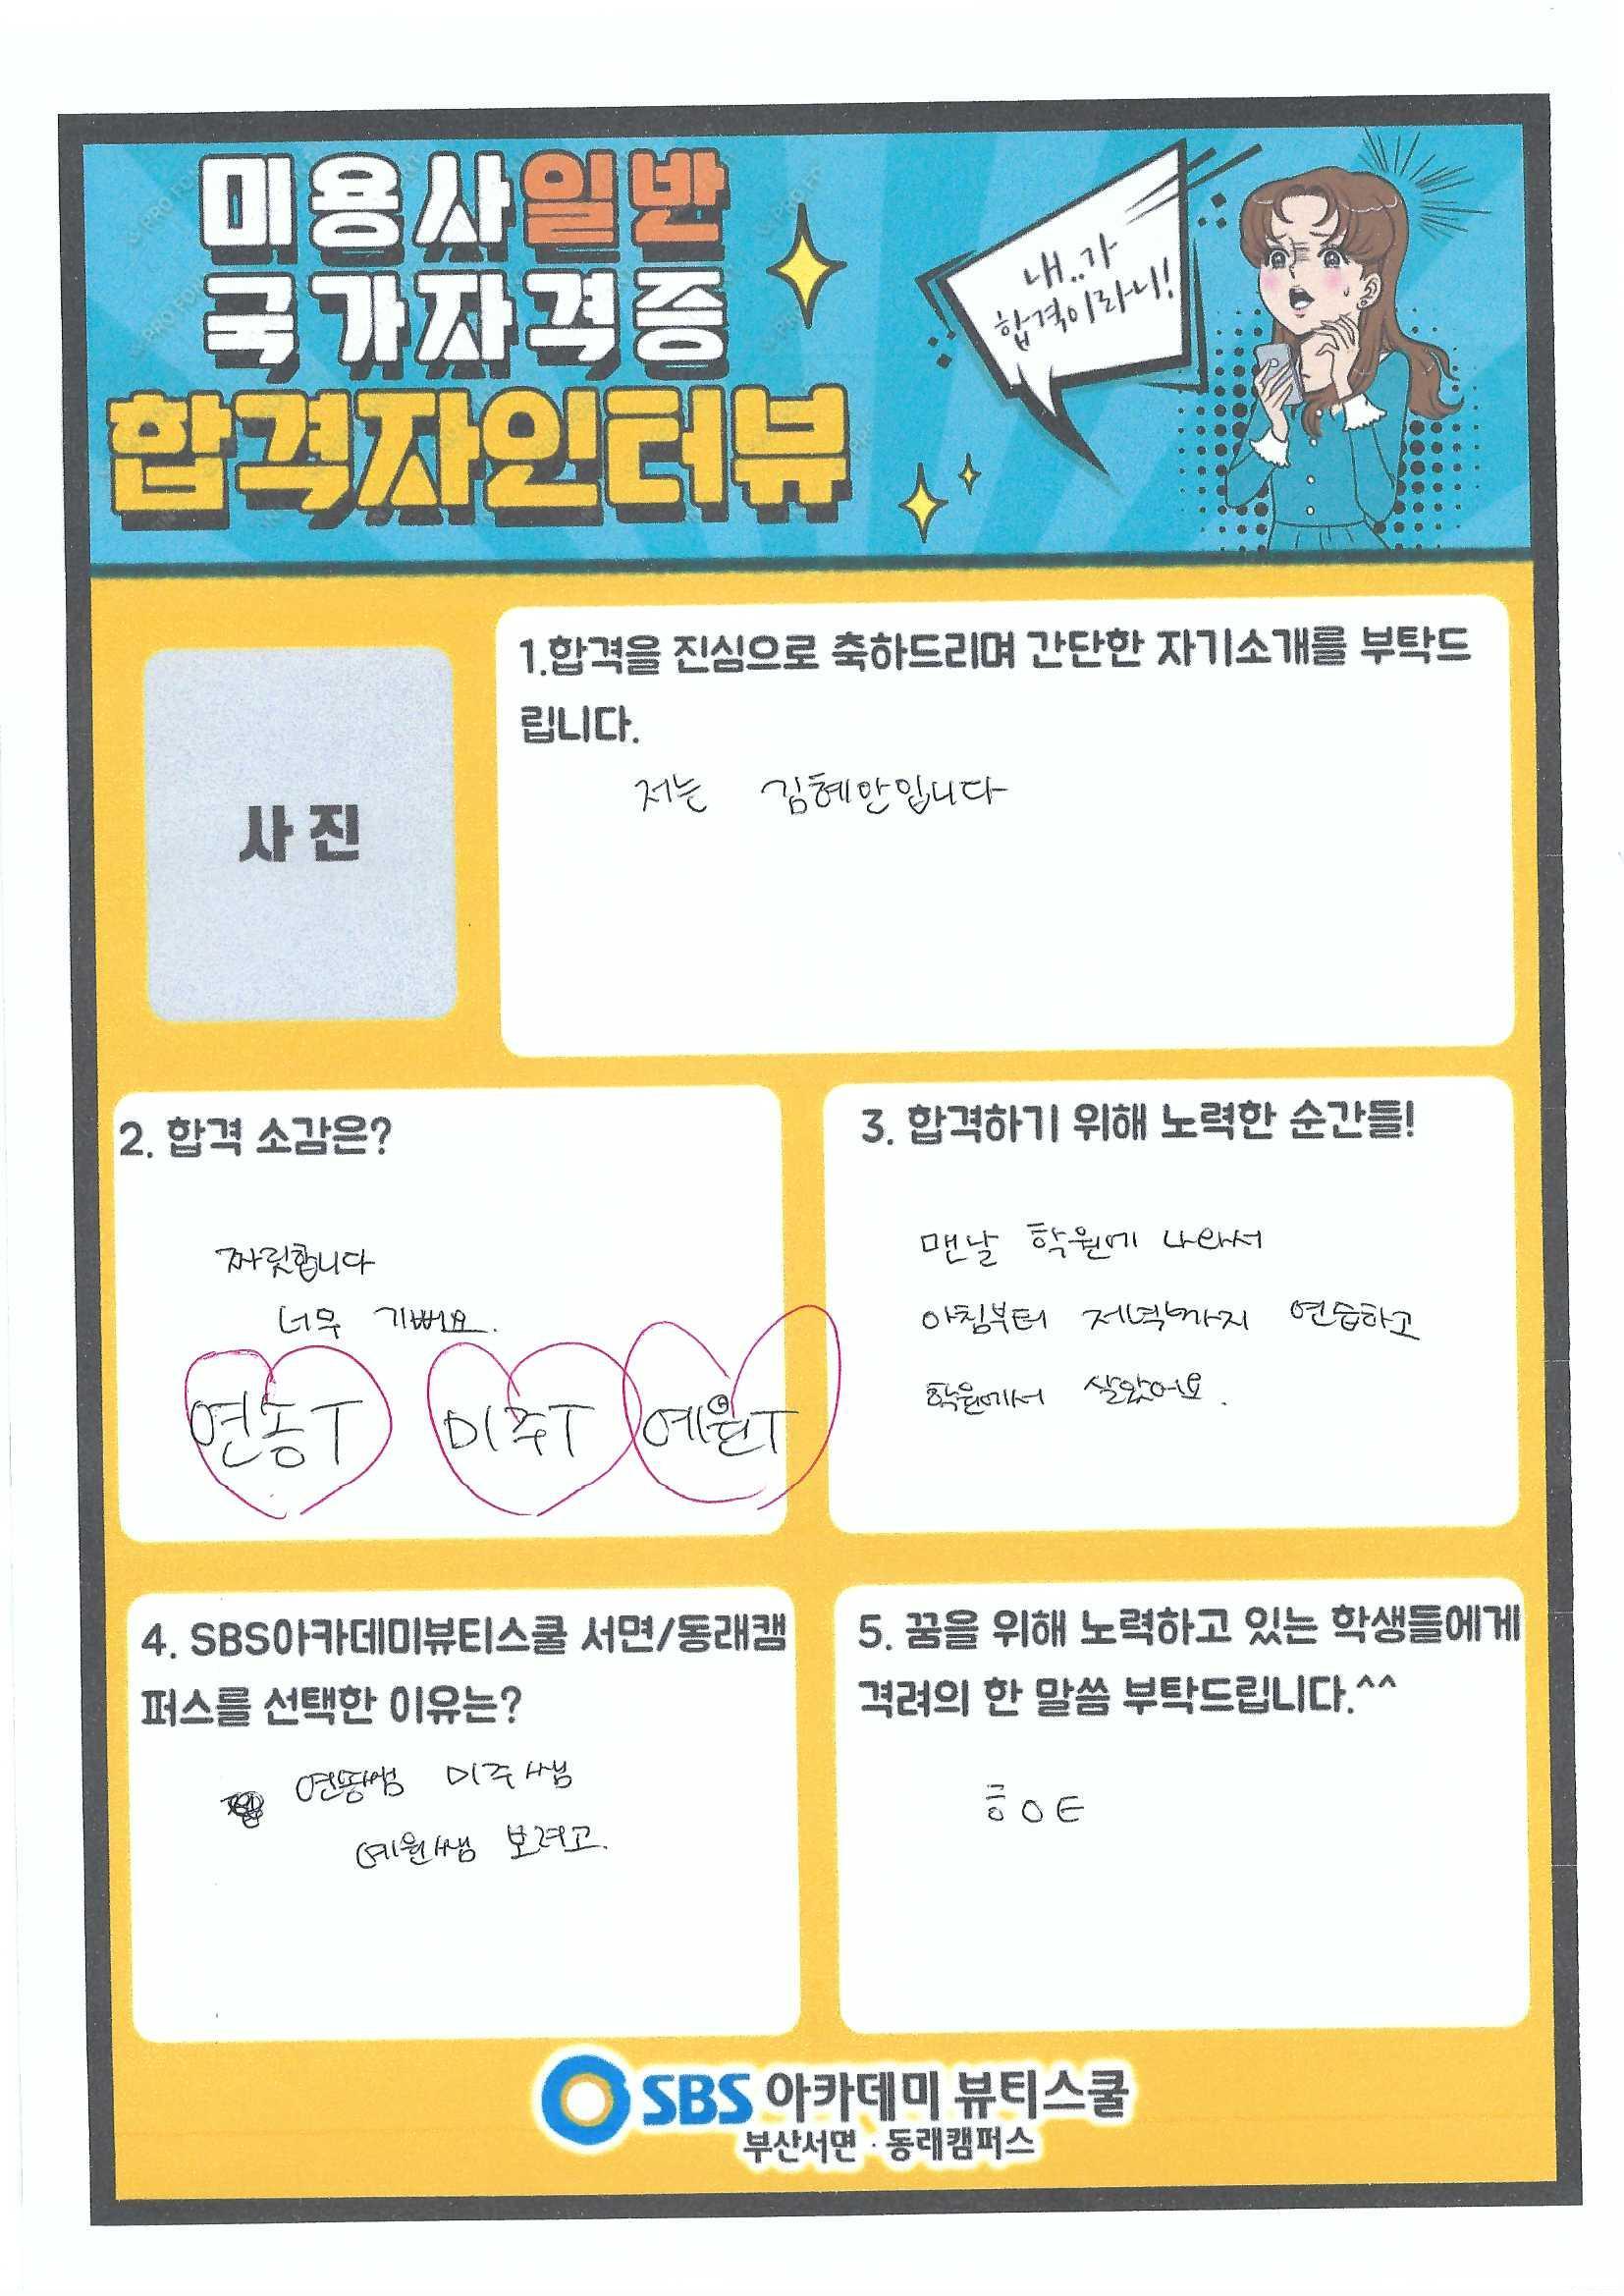 미용사일반
국가자격증
합격자인터뷰
내..가
합격이라니!
1.합격을 진심으로 축하드리며 간단한 자기소개를 부탁드
립니다.
저는 김혜안입니다
사 진
2. 합격 소감은?
짜릿합니다
너무 기뻐요.
연동T 미주T 예원T
3. 합격하기 위해 노력한 순간들!
맨날 학원에 나와서
아침부터 저녁까지 연습하고
학원에서 살았어요.
4. SBS아카데미뷰티스쿨 서면/동래캠
퍼스를 선택한 이유는?
연똥쌤 미주쌤
예원쌤 보려고.
5. 꿈을 위해 노력하고 있는 학생들에게
격려의 한 말씀 부탁드립니다.^^
ㅎㅇㅌ
SBS 아카데미 뷰티스쿨
부산서면 · 동래캠퍼스